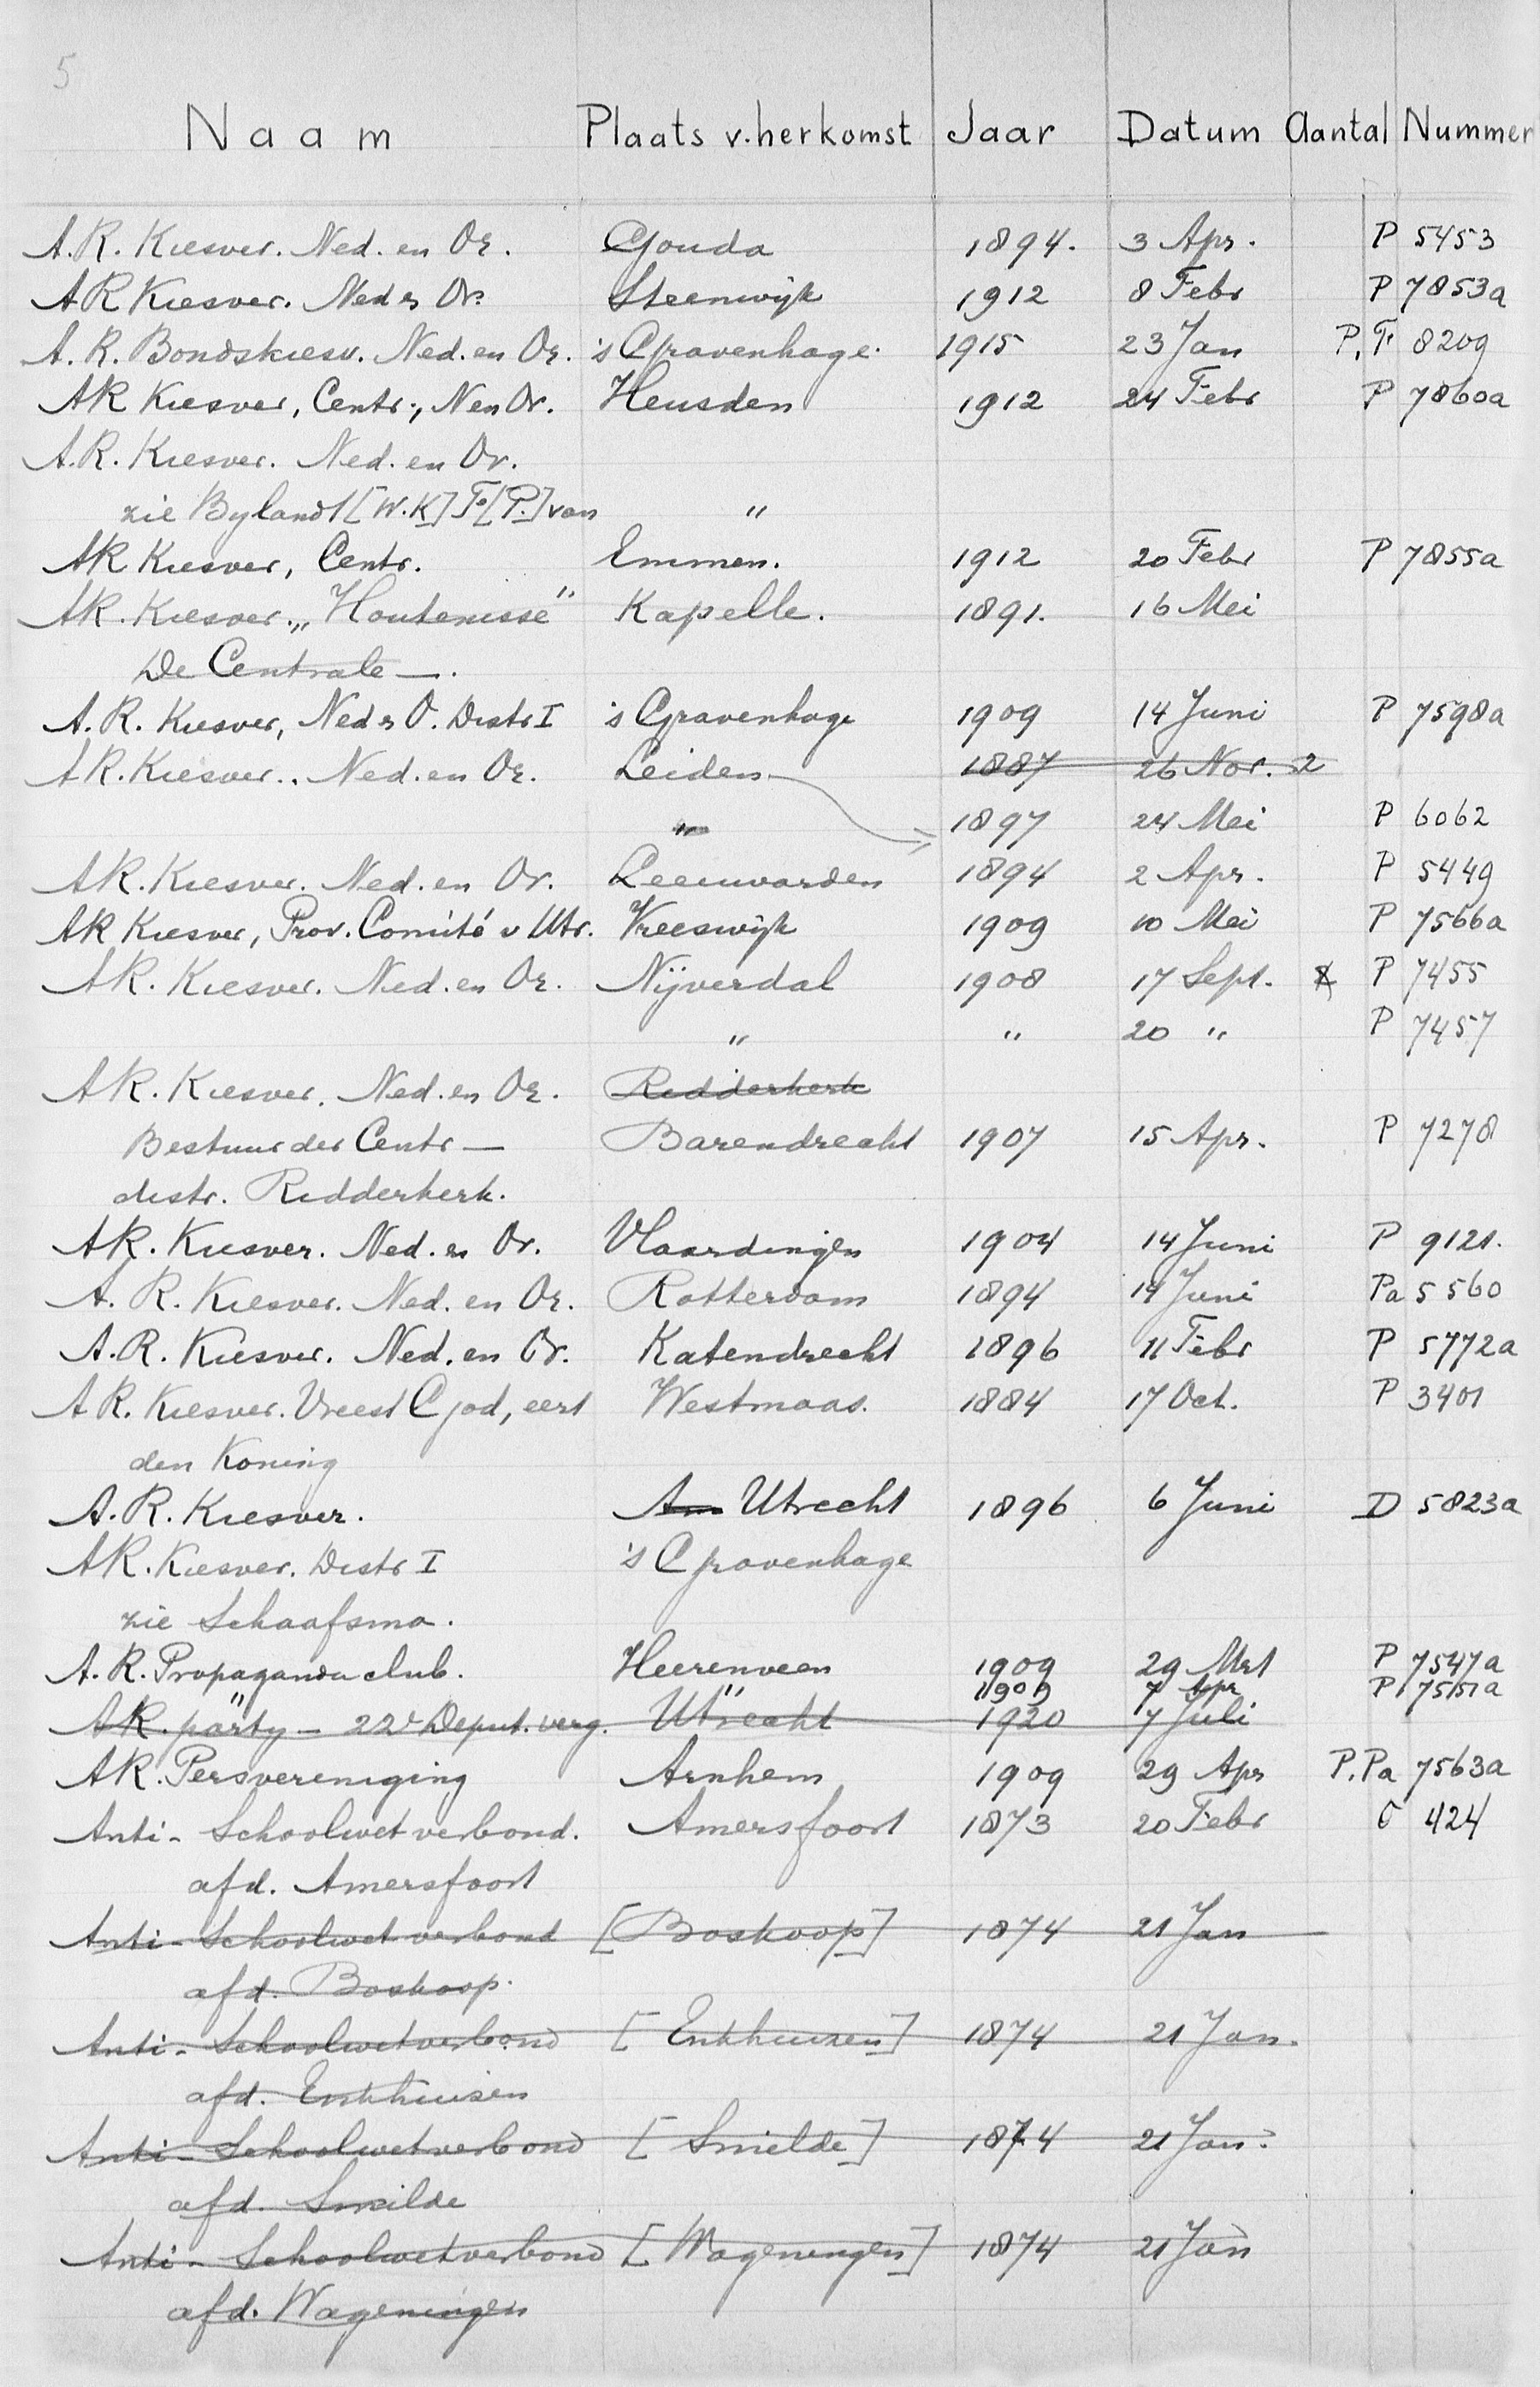 5
Naam Plaats v. herkomst Jaar Datum Aantal Nummer
A.R. Kiesver. Ned. en Or. Gouda 1894. 3 Apr. P 5453
AR Kiesver. Ned en Or. Steenwijk 1912 8 Febr P 7853a
A.R. Bondskiesv. Ned. en Or. 's Gravenhage. 1915 23 Jan P, F 8209
AR Kiesver, Centr., N en Or. Heusden 1912 24 Febr P 7860a
A.R. Kiesver. Ned. en Or.
zie Bylandt [W.K] F. [P.] van "
AR Kiesver, Centr. Emmen. 1912 20 Febr P 7855a
AR. Kiesver. „Hontenisse" Kapelle. 1891. 16 Mei
De Centrale —.
A.R. Kiesver, Ned en O. Distr I 's Gravenhage 1909 14 Juni P 7598a
AR. Kiesver.. Ned. en Or. Leiden 1887 26 Nov. 2
" 1897 24 Mei P 6062
AR. Kiesver. Ned. en Or. Leeuwarden 1894 2 Apr. P 5449
AR Kiesver, Prov. Comité v Utr. Vreeswijk 1909 10 Mei P 7566a
AR. Kiesver. Ned. en Or. Nijverdal 1908 17 Sept. P 7455
" " 20 " P 7457
AR. Kiesver. Ned. en Or. Ridderkerk
Bestuur der Centr — Barendrecht 1907 15 Apr. P 7278
distr. Ridderkerk.
AR. Kiesver. Ned. en Or. Vlaardingen 1904 14 Juni P 9121.
A.R. Kiesver. Ned. en Or. Rotterdam 1894 14 Juni Pa 5560
A.R. Kiesver. Ned. en Or. Katendrecht 1896 11 Febr P 5772a
AR. Kiesver. Vreest God, eert Westmaas. 1884 17 Oct. P 3401
den Koning
A.R. Kiesver. Am Utrecht 1896 6 Juni D 5823a
AR. Kiesver. Distr I 's Gravenhage
zie Schaafsma.
A.R. Propaganda club. Heerenveen 1909 29 Mrt P 7547a
" " 1909 7 Apr P 7551a
AR. party — 22e Deput. verg. Utrecht 1920 7 Juli
AR. Persvereniging Arnhem 1909 29 Apr P, Pa 7563a
Anti-Schoolwetverbond. Amersfoort 1873 20 Febr C 424
afd. Amersfoort
Anti-Schoolwetverbond [Boskoop] 1874 21 Jan
afd. Boskoop.
Anti-Schoolwetverbond [Enkhuizen] 1874 21 Jan.
afd. Enkhuisen
Anti-Schoolwetverbond [Smilde] 1874 21 Jan.
afd. Smilde
Anti-Schoolwetverbond [Wageningen] 1874 21 Jan
afd. Wageningen